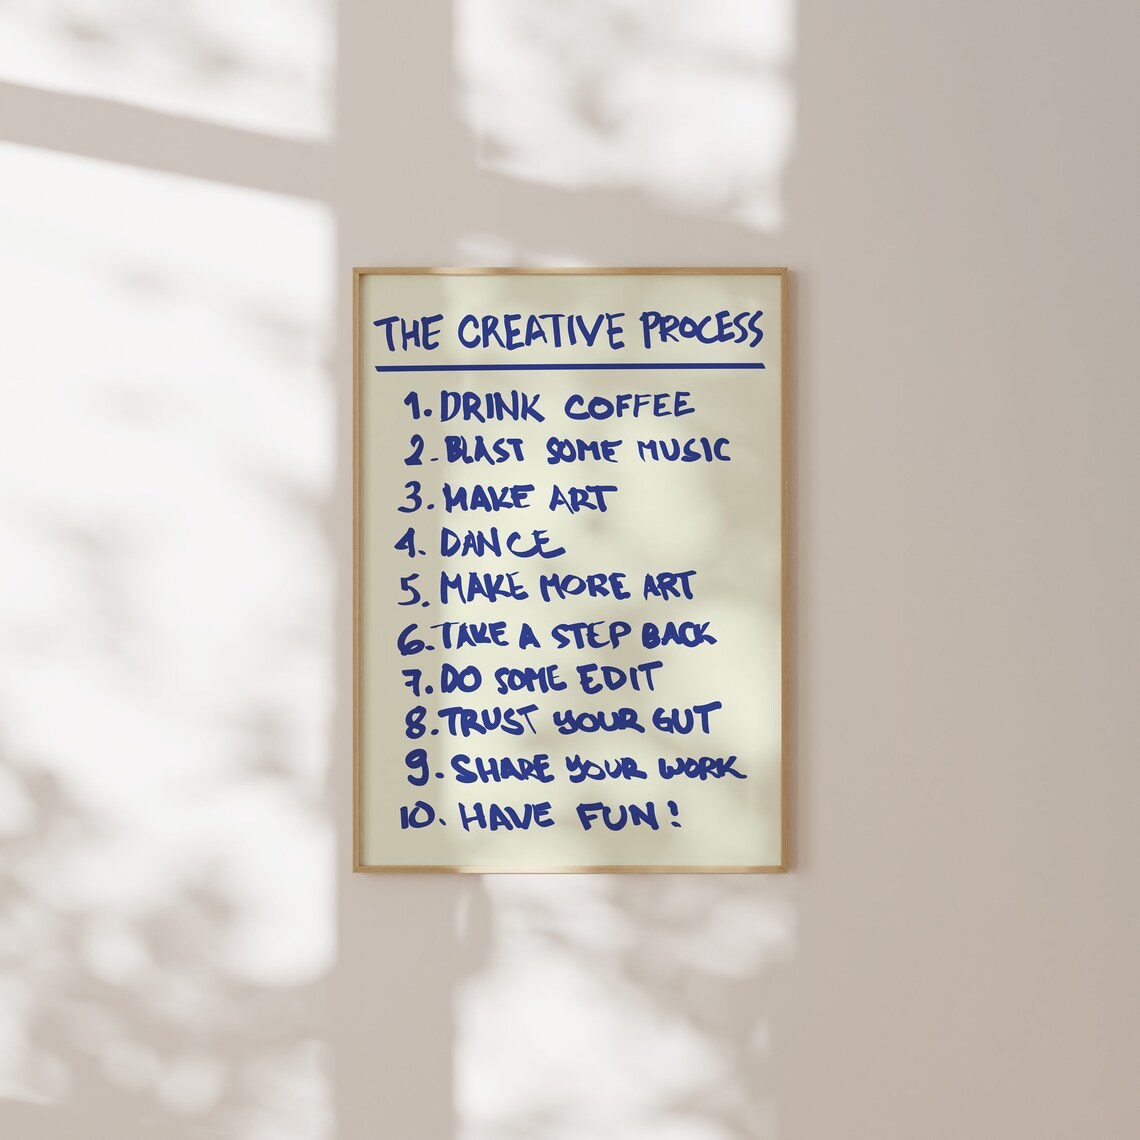 THE CREATIVE PROCESS
1. DRINK COFFEE
2. BLAST SOME MUSIC
3. MAKE ART
4. DANCE
5. MAKE MORE ART
6. TAKE A STEP BACK
7. DO SOME EDIT
8. TRUST YOUR GUT
9. SHARE YOUR WORK
10. HAVE FUN!